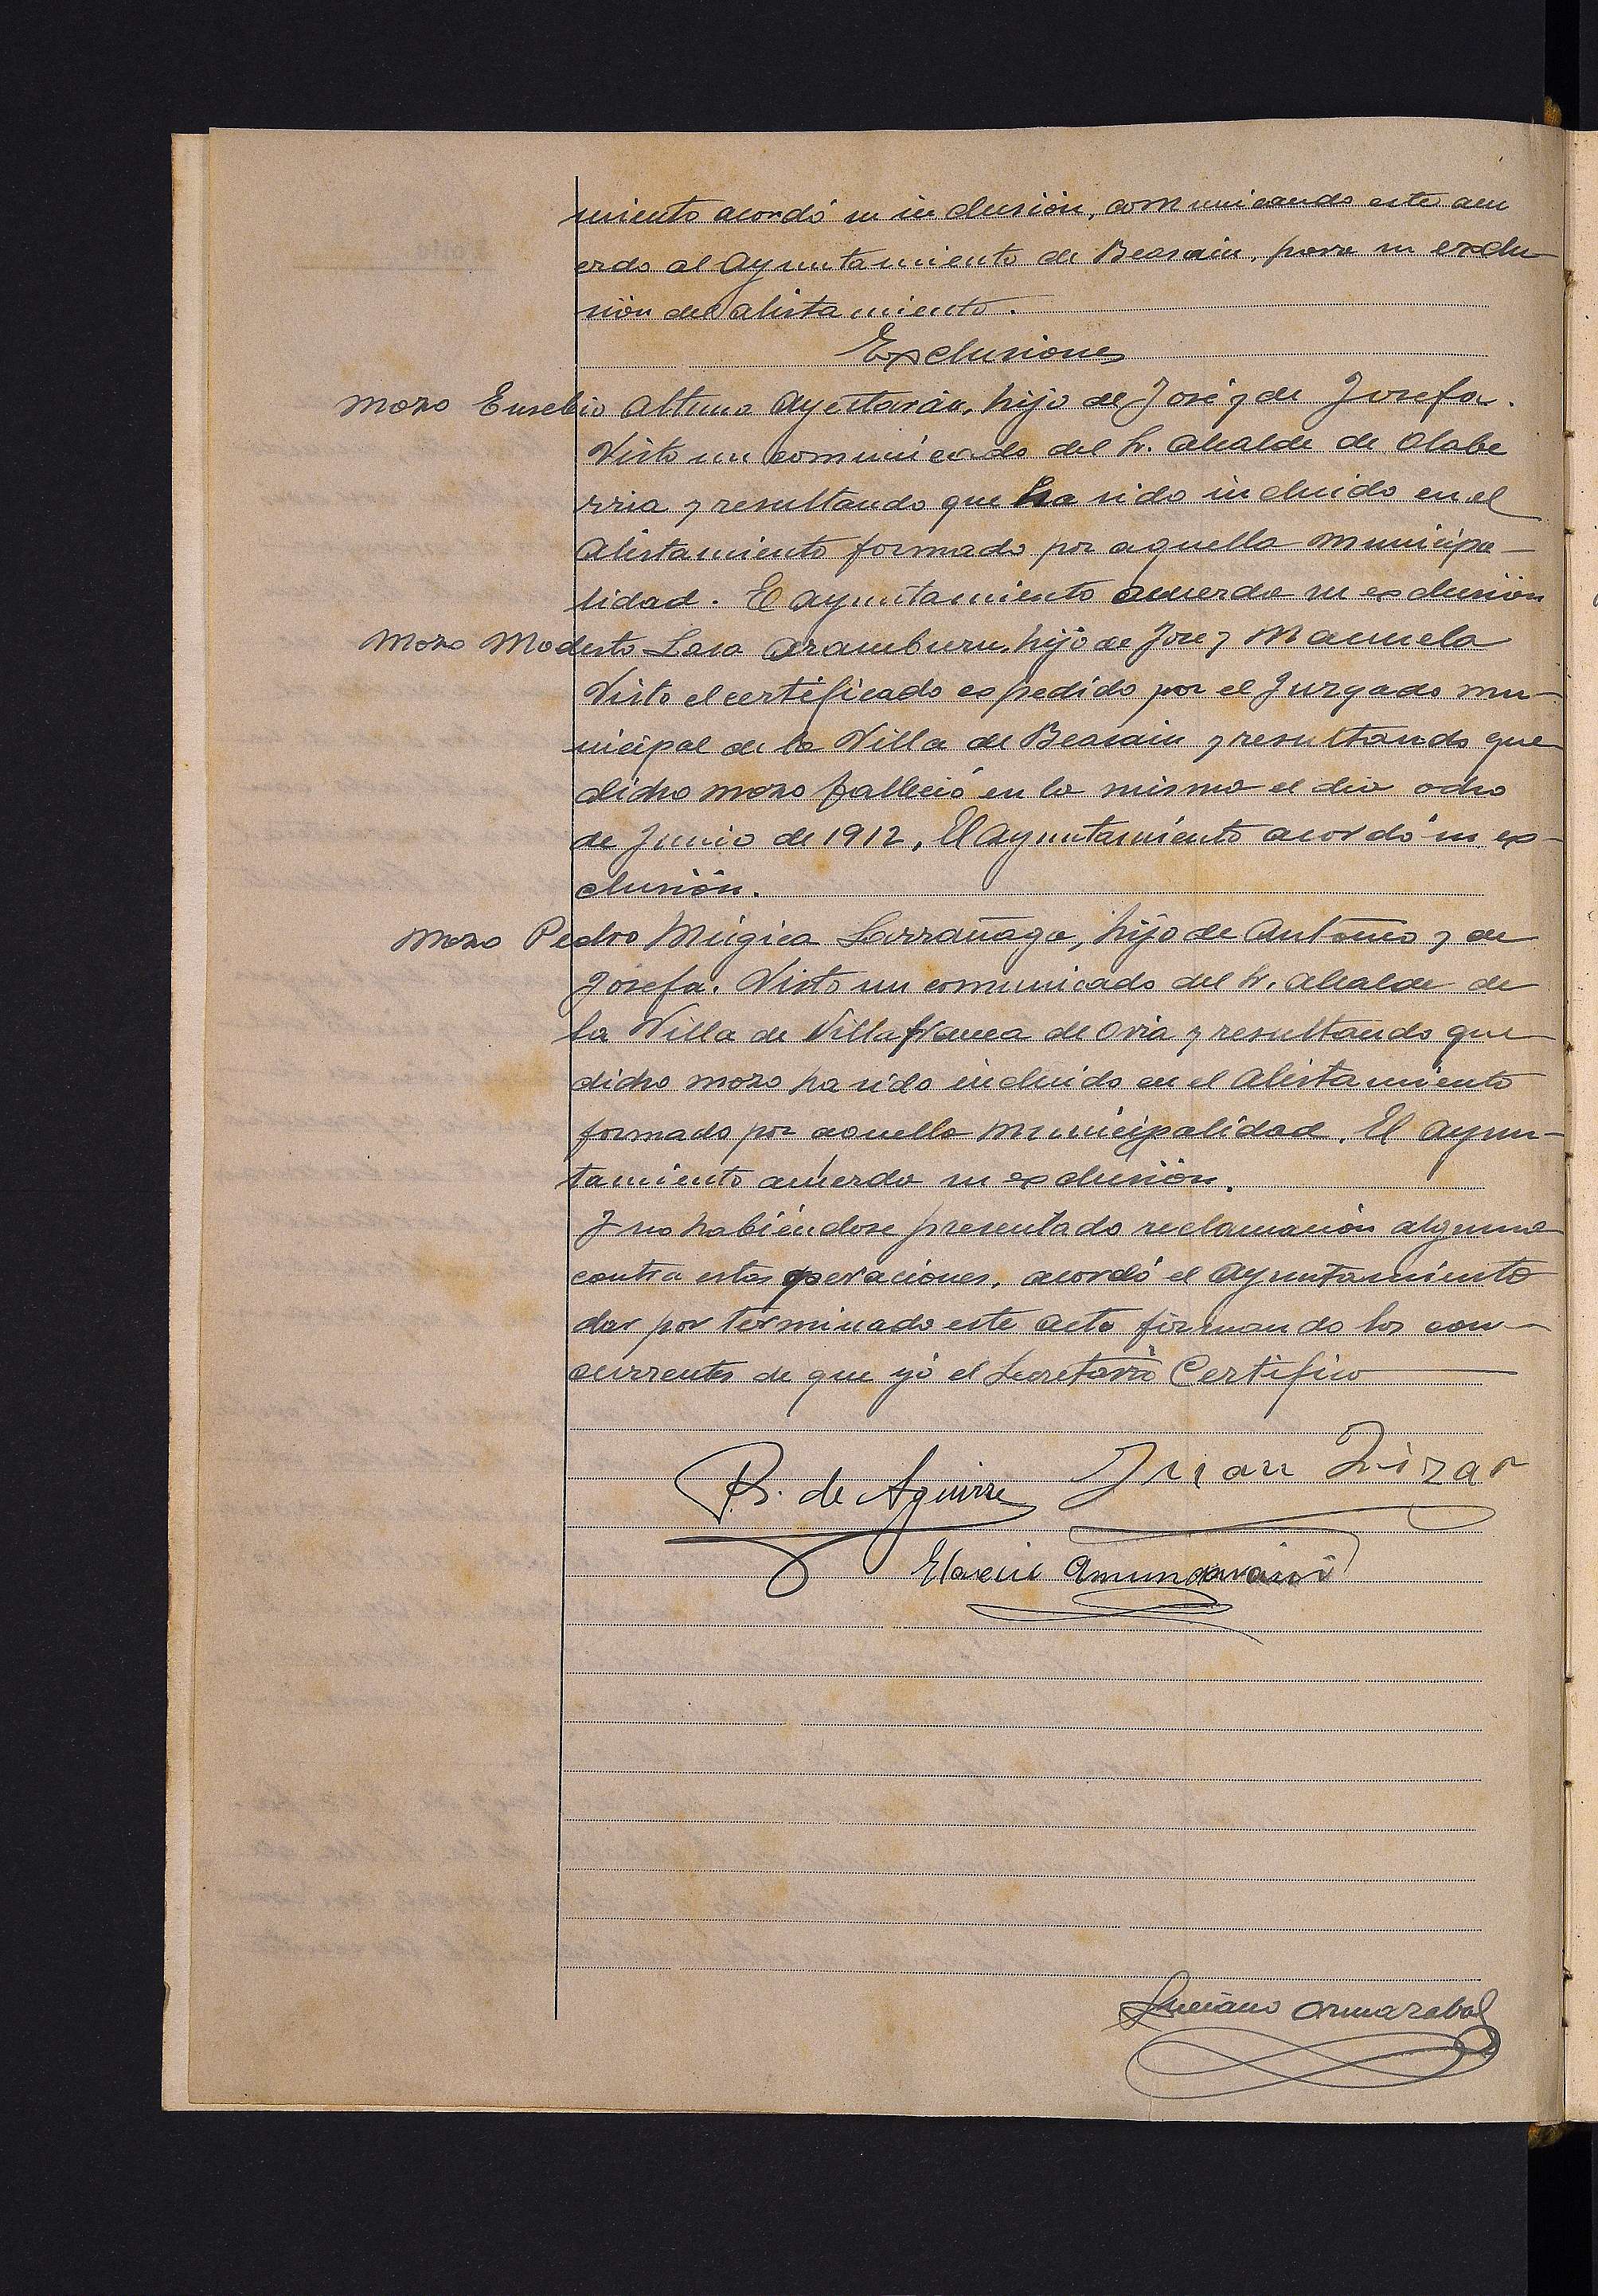 miento acordó su inclusión, comunicando este acu
erdo al Ayuntamiento de Beasain, para su exclu-
sión del alistamiento.
Exclusiones
Mozo Eusebio Altuna Ayestarán, hijo de José y de Josefa.
Visto un comunicado del Sr. Alcalde de Olabe
rria y resultando que ha sido incluido en el
Alistamiento formado por aquella Municipa-
lidad. El Ayuntamiento acuerda su exclusión
Mozo Modesto Lasa Aramburu, hijo de José y Manuela
Visto el certificado expedido por el Juzgado mu-
nicipal de la Villa de Beasain y resultando que
dicho mozo falleció en la misma el dia ocho
de Junio de 1912, El Ayuntamiento acordó su ex-
clusión.
Mozo Pedro Múgica Larrañaga, hijo de Antonio y de
Josefa. Visto un comunicado del Sr. Alcalde de
la Villa de Villafranca de Oria y resultando que
dicho mozo ha sido incluido en el Alistamiento
formado por aquella Municipalidad. El Ayun-
tamiento acuerda su exclusión.
Y no habiéndose presentado reclamación alguna
contra estas operaciones, acordó el Ayuntamiento
dar por terminado este acto firmando los con-
currentes de que yó el Secretario Certifico
P. de Aguirre Juan
Amundarain
Luciano